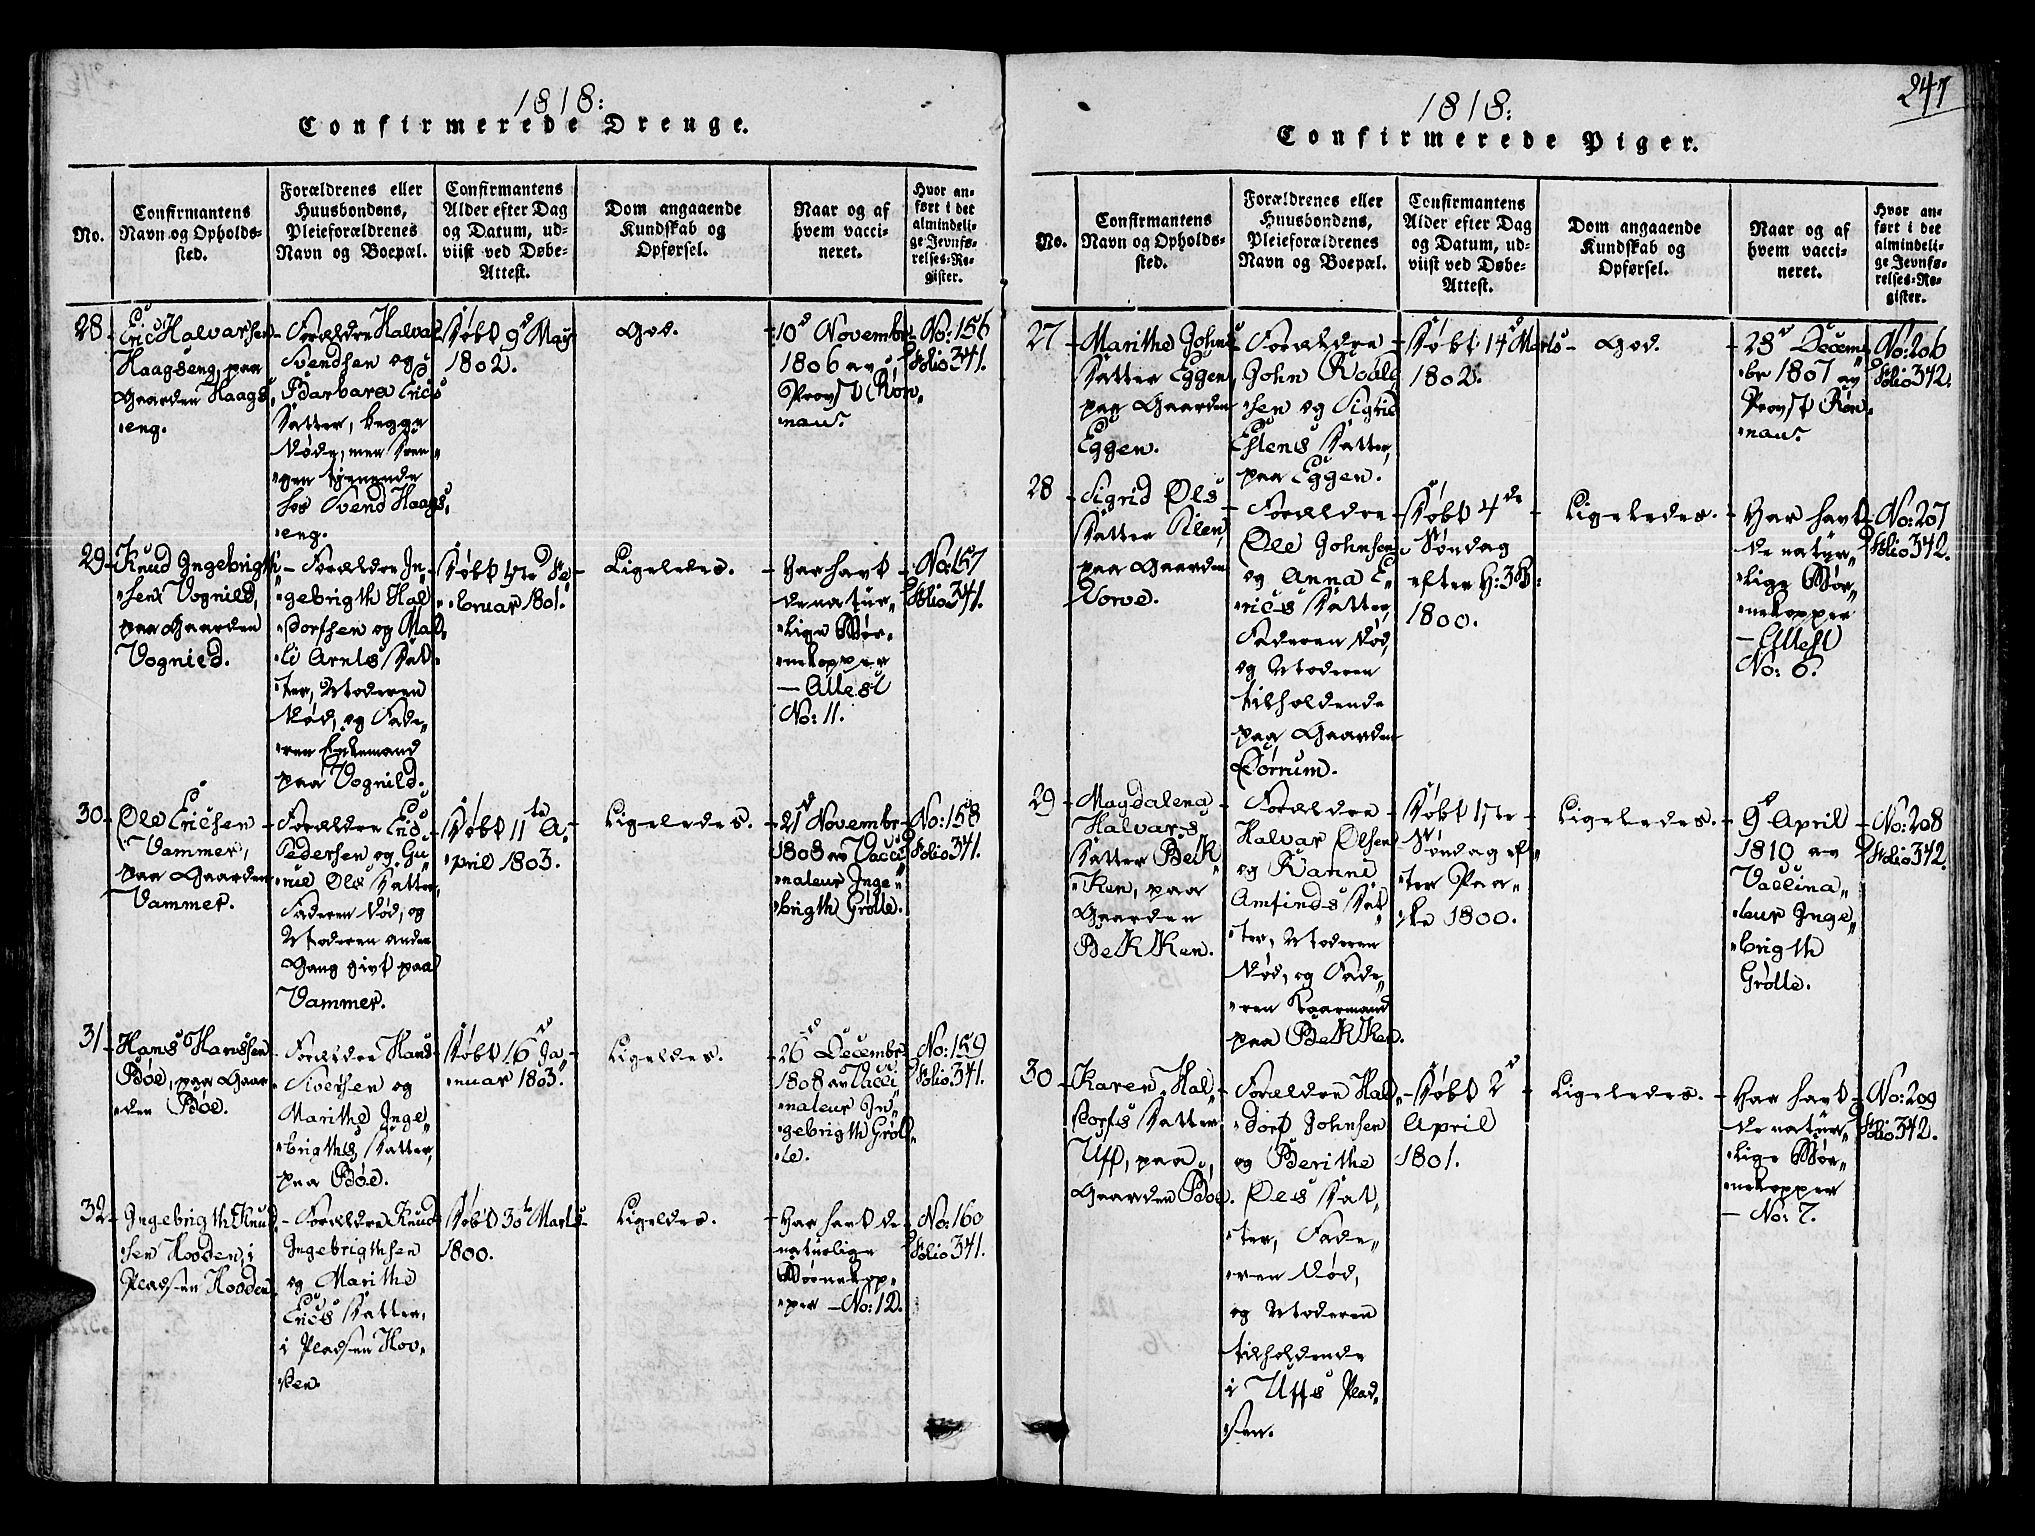 1818:
Confirmerede Drenge.
No.
Confirmantens
Navn og Opholds-
sted.
Forældrenes eller
Huusbondens,
Pleieforældrenes
Navn og Boepæl.
Confirmantens
Alder efter Dag
og Datum, ud-
viist ved Døbe-
Attest.
Dom angaaende
Kundskab og
Opførsel.
Naar og af
hvem vacci-
neret.
Hvor an-
ført i det
almindeli-
ge Jevnfø-
relses-Re-
gister.
28
Eric Halvorsen
Haagseng, paa
Gaarden Haags
eng.
Forældre Halvar
Svendsen og
Barbara Erics
Datter, begge
døde, men Dren
gen tjenende
hos Svend Haags
eng.
Døbt 9d May
1802.
God.
10d Novembr
1806 av
Provst Røn
nau.
No: 156
Folio 341.
29
Knud Ingebrigth
sen Vognild,
paa Gaarden
Vognild.
Forældre In
gebrigth Hal
dorfsen og Mal
li Arnts Dat
ter, Moderen
død, og Fade
ren Enkemand
paa Vognild.
Døbt 17de Fe
bruar 1801.
Ligeledes.
Har havt
de natur
lige Bør
nekopper
— Attest
No: 11.
No: 157
Folio 341.
30
Ole Ericsen
Vammer,
paa Gaarden
Vammer.
Forældre Eric
Pedersen og Gu
rue Ols Datter,
Faderen død, og
Moderen anden
Gang givt paa
Vammer.
Døbt 11te A
pril 1803.
Ligeledes.
21d Novembr
1808 av Vacci
nateur Inge
brigth Grølle.
No: 158
Folio 341.
31
Hans Hanssen
Bøe, paa Gaar
den Bøe.
Forældre Hans
Siversen og
Marithe Inge
brigths Datter,
paa Bøe.
Døbt 16d Ja
nuar 1803.
Ligeledes.
26d Decembr
1808 av Vacci
nateur In
gebrigth Grøl
le.
No: 159
Folio 341.
32
Ingebrigth Knud
sen Hovden, i
Pladsen Hovden
Forældre Knud
Ingebrigthsen
og Marithe
Erics Datter,
i Pladsen Hov
den.
Døbt 30t Marts
1800.
Ligeldes.
Har havt de
naturlige
Børnekop
per – No: 12.
No: 160
Folio 341.
241
1818:
Confirmerede Piger.
No.
Confirmantens
Navn og Opholds-
sted.
Forældrenes eller
Huusbondens,
Pleieforældrenes
Navn og Boepæl.
Confirmantens
Alder efter Dag
og Datum, ud-
viist ved Døbe-
Attest.
Dom angaaende
Kundskab og
Opførsel.
Naar og af
hvem vacci-
neret.
Hvor an-
ført i det
almindeli-
ge Jevnfø-
relses-Re-
gister.
27
Marithe Johns
Datter Eggen,
paa Gaarden
Eggen.
Forældre
John Roalg
sen og Sigrie
Estens Datter,
paa Eggen.
Døbt 14d Marts
1802.
God.
28d Decem
br 1807 av
Provst Røn
nau.
No: 206
Folio 342.
28
Sigrid Ols
Datter Dilen,
paa Gaarden
Vorve.
Forældre
Ole Johnsen
og Anna E
rics Datter,
Faderen død,
og Moderen
tilholdende
paa Gaarden
Dørrum.
Døbt 4de
Søndag
efter H: 3K:
1800.
Ligeledes.
Har havt
de natur
lige Bør
nekopper
— Attest
No: 6.
No: 207
Folio 342.
29
Magdalena
Halvars
Datter Bek
ken, paa
Gaarden
Bekken.
Forældre
Halvar Olsen
og Ranni
Amfinds Dat
ter, Moderen
død, og Fade
ren Kaarmand
paa Bekken.
Døbt 1ste
Søndag ef
ter Paa
ske 1800.
Ligeledes.
9d April
1810 av
Vaccina
teur Inge
brigth
Grølle.
No: 208
Folio 342.
30
Karen Hal
dorfs Datter
Uff, paa
Gaarden Bøe.
Forældre Hal
dorf Johnsen
og Berithe
Ols Dat
ter, Fade
ren død,
og Moderen
tilholdende
i Uffs Plad
sen.
Døbt 2d
April
1801.
Ligeledes.
Har havt
de natur
lige Bør
nekopper
— No: 7.
No: 209
Folio 342.